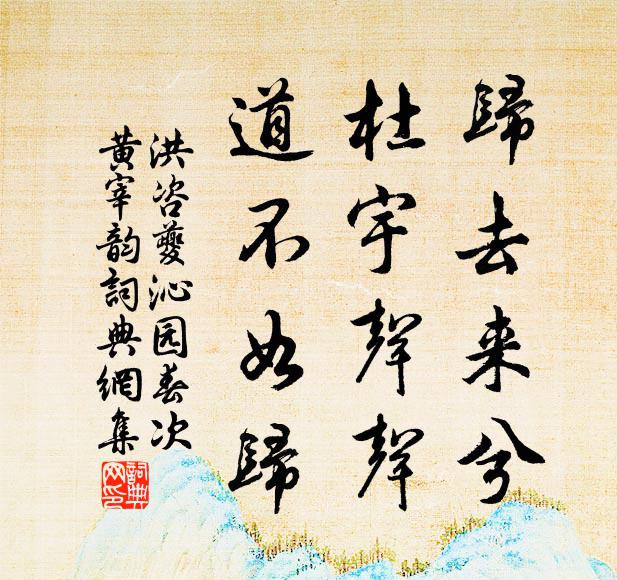 歸去来兮
杜宇聲聲
道不如歸
洪咨夔沁园春次
黄宰韵詞典網集
詞典网印